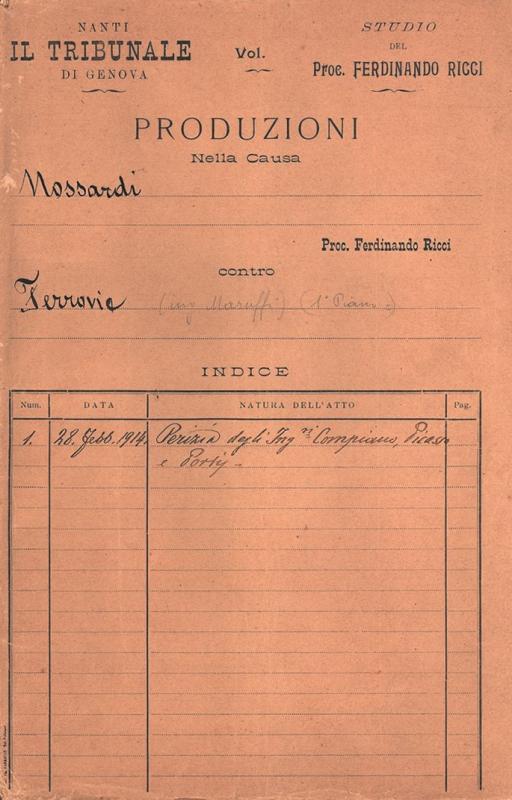 NANTI
IL TRIBUNALE
DI GENOVA
Vol.
STUDIO
DEL
Proc. FERDINANDO RICCI
PRODUZIONI
Nella Causa
Mossardi
Proc. Ferdinando Ricci
contro
Ferrovie (ing Maruffi) (1° Piano)
INDICE
Num. DATA NATURA DELL'ATTO Pag.
1. 28. Febb. 1914. Perizia degli Ing.ri Compiano, Picasso
e